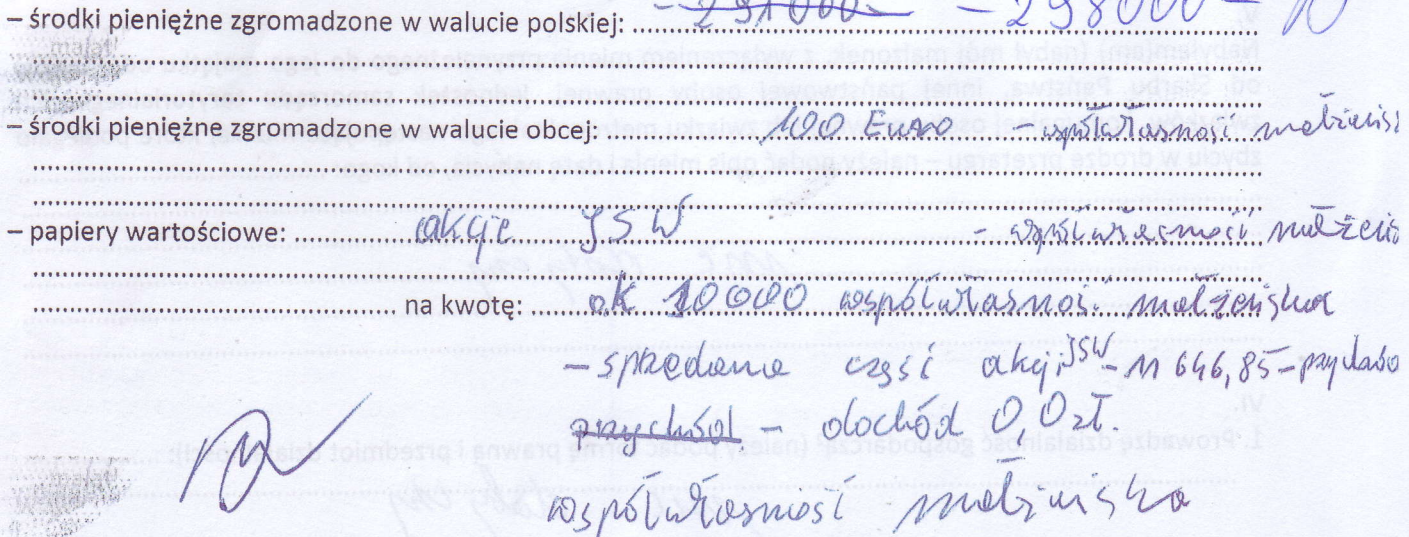 – środki pieniężne zgromadzone w walucie polskiej: – 291000 – 298000 –
– środki pieniężne zgromadzone w walucie obcej: 100 Euro – współwłasność małżeńs
– papiery wartościowe: akcje JSW – współwłasność małżeńs
na kwotę: ok 10000 współwłasnoś. małżeńska
– sprzedano część akcji JSW – 11 646,85 – przychód
przychód – dochód 0,0 zł.
współwłasność małżeńska